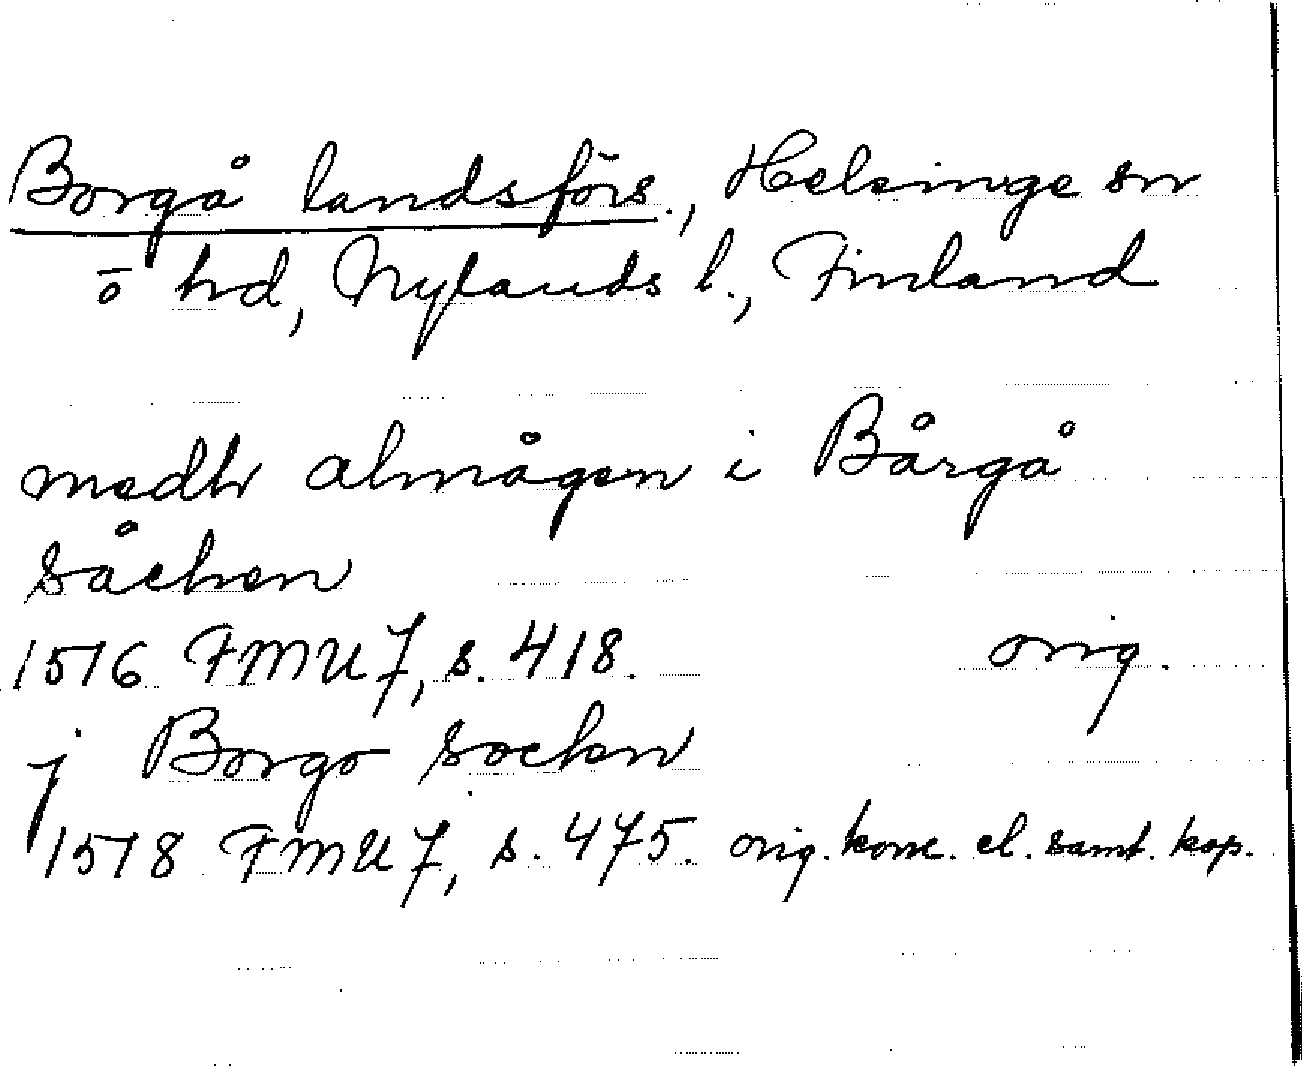 Borgå landsförs., Helsinge sn
ö hd, Nylands l., Finland
medh almågen i Bårgå
såchen
1516 FMU 7, s. 418. orig.
j Borgo sockn
1518 FMU 7, s. 475. orig. konc. el. samt. kop.